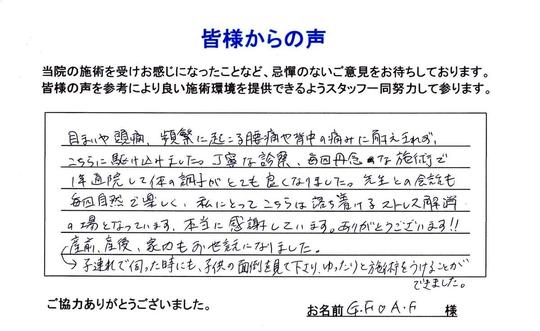 皆様からの声
当院の施術を受けお感じになったことなど、忌憚のないご意見をお待ちしております。
皆様の声を参考により良い施術環境を提供できるようスタッフ一同努力して参ります。
目まいや頭痛、頻繁に起こる腰痛や背中の痛みに耐えきれず、
こちらに駆け込けました。丁寧な診察、毎回丹念な施術で
1年通院して体の調子がとても良くなりました。先生との会話も
毎回自然で楽しく、私にとってこちらは落ち着けるストレス解消
の場となっています。本当に感謝しています。ありがとうございます!!
産前、産後、主人もお世話になりました。
→子連れで伺った時にも、子供の面倒を見て下さり、ゆったりと施術をうけることが
できました。
ご協力ありがとうございました。
お名前 G.F 様